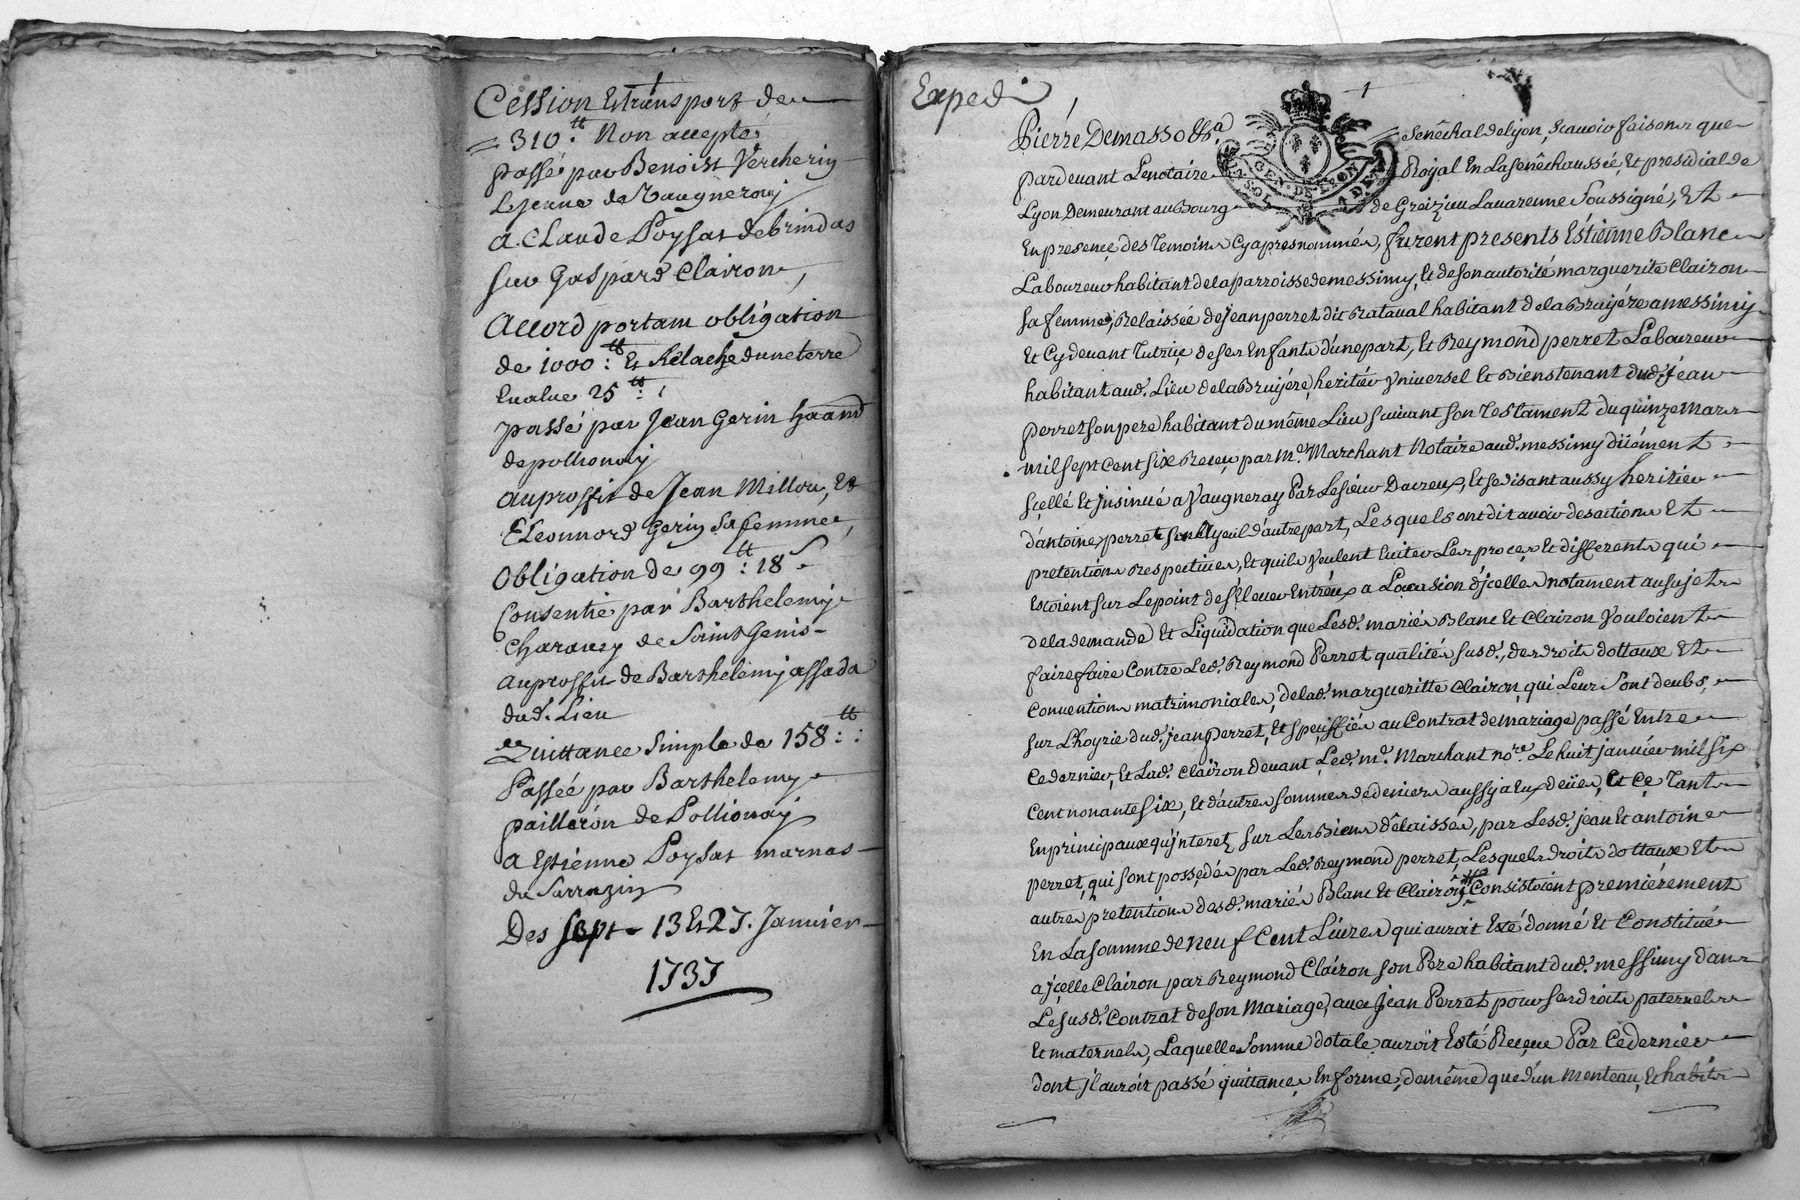 Cession Et transport de
310:tt Non accepté
passé par Benoist Vercherin
Lejeune de Vaugneray
A Claude Poysat de brindas
sur Gaspard Clairon,
Accord portant obligation
de 1000:tt Et Relache dune terre
Evalue 25:tt
passé par Jean Gerin
de pollionay
au proffit de Jean Millou, Et
Eleonnord Gerin sa femme,
Obligation de 99:tt 18s
Consentie par Barthelemy
Charavey de Saint Genis
au proffit de Barthelemy assada
dud. Lieu
Quittance simple de 158:tt
Passée par Barthelemy
pailleron de Pollionay
a Estienne Poysat marnas
de Sarrazin
Des sept - 13 Et 27. Janvier
1737
Exped
Pierre Demasso Senêchal de lyon, scavoir faisons que
pardevant Le notaire Royal En La senêchaussée, Et presidial de
Lyon Demeurant au Bourg de Greizieu Lavarenne Soussigné, Et
En presence des Temoins Cy apres nommés, furent presents Estienne Blanc
Laboureur habitant de la parroisse de messimy, Et de son autorité marguerite Clairon
sa femme, Relaissée de jean perret dit Rataval habitant de la Bruyére a messimy
Et Cy devant Tutrice de ses Enfants d'une part, Et Reymond perret Laboureur
habitant aud. Lieu de la Bruyére, heritier Vniversel Et Bienstenant dud. jean
perret son pere habitant du même Lieu suivant son Testament du quinze Mars
mil sept Cent six Receu par Me. Marchant Notaire aud. messimy düement
scellé Et jnsinué a Vaugneray Par Le sieur Dacreux, Et se disant aussy heritier
d'antoine perret son Ayeul d'autre part, Lesquels ont dit avoir des actions Et
pretentions respectives, Et quils veulent Eviter Les proces Et differents qui
Estoient sur Le point de s'Elever Entr'eux a Loccasion d'jcelles notament au sujet
de la demande Et Liquidation que Lesd. mariés Blanc Et Clairon Vouloient
faire faire Contre Led. Reymond Perret qualités susd., des droits dottaux Et
Conventions matrimoniales, de lad. margueritte Clairon, qui Leur sont deubs,
sur L'hoyrie dud. jean perret, Et speciffiés au Contrat de mariage passé Entre
Ce dernier, Et Lad. Clairon devant Led. me. Marchant nore. Le huit janvier mil six
Cent nonante six, Et d'autres sommes de deniers aussy a Eux deües, Et Ce Tant
En principaux qu'jnterez sur Les Biens délaissés, par Lesd. jean Et antoine
perret, qui sont possedés par Led. Reymond perret, Lesquels droits dottaux Et
autres pretentions desd. mariés Blanc Et Clairon Consistoient premiérement
En La somme de neuf Cent Livres qui auroit Esté donné Et Constitué
a jcelle Clairon par Reymond Clairon son Pere habitant dud. messimy dans
Le susd. Contrat de son Mariage, avec jean Perret pour ses droits paternels
Et maternels, Laquelle somme dotale auroit Esté Receue Par Ce dernier
dont jl auroit passé quittance En forme, de même que d'un Menteau, Et habits